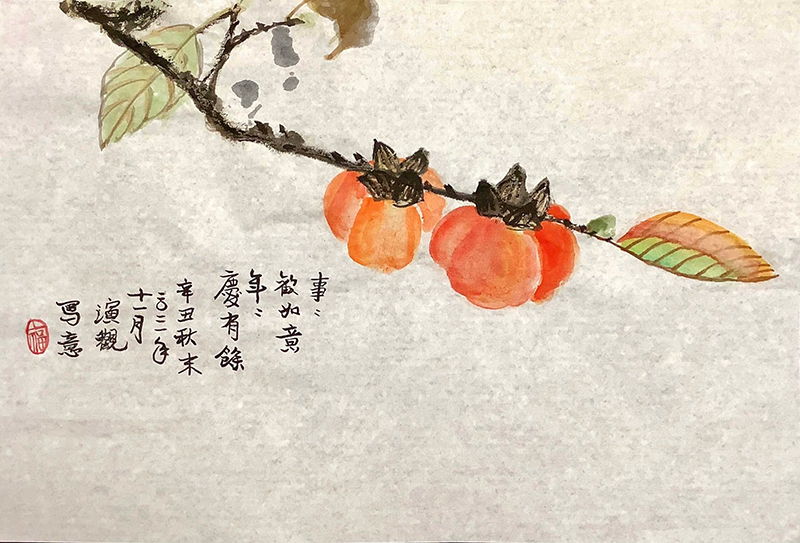 事〻
歡如意
年〻
慶有餘
辛丑秋末
二〇二一年
十一月
演觀
写意